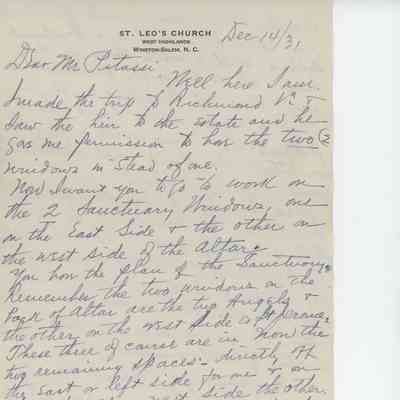 ST. LEO'S CHURCH
WEST HIGHLANDS
WINSTON-SALEM, N. C.
Dec 14/31
Dear Mr Pitassi
Well here I am.
I made the trip to Richmond Va. &
saw the heir to the estate and he
gave me permission to have the two (2
windows in stead of one.
Now I want you to go to work on
the 2 Sanctuary Windows, one
on the East Side & the other on
the west side of the Altar.
You have the plan of the Sanctuary.
Remember the two windows in the
back of Altar are the two Angels &
the other on the West Side is St Jerome.
These three of course are in. Now the
two remaining spaces - directly off
the East or left side for me & on
side the other